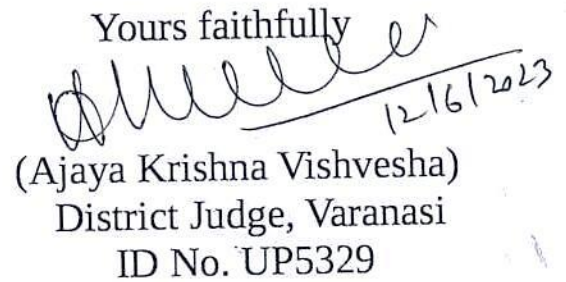 Yours faithfully
12/6/2023
(Ajaya Krishna Vishvesha)
District Judge, Varanasi
ID No. UP5329